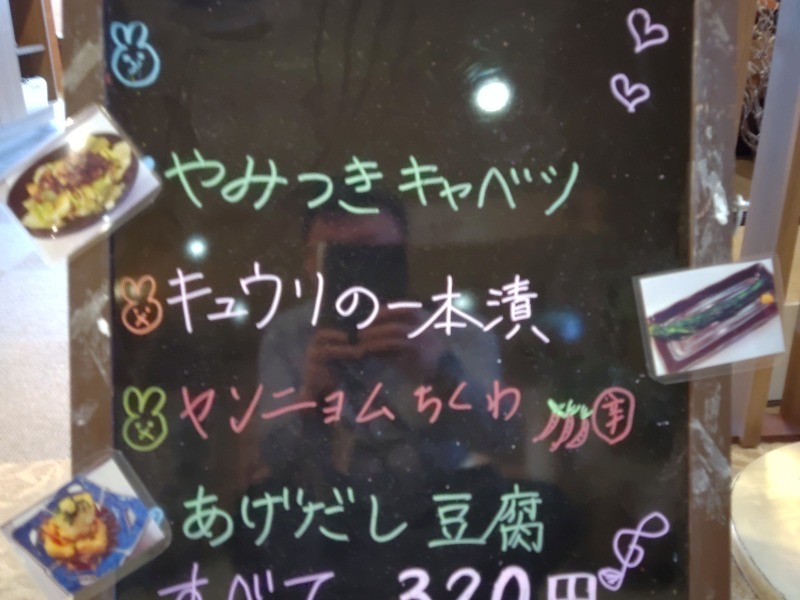 やみつきキャベツ
キュウリの一本漬
ヤンニョムちくわ 辛
あげだし豆腐
すべて 320円